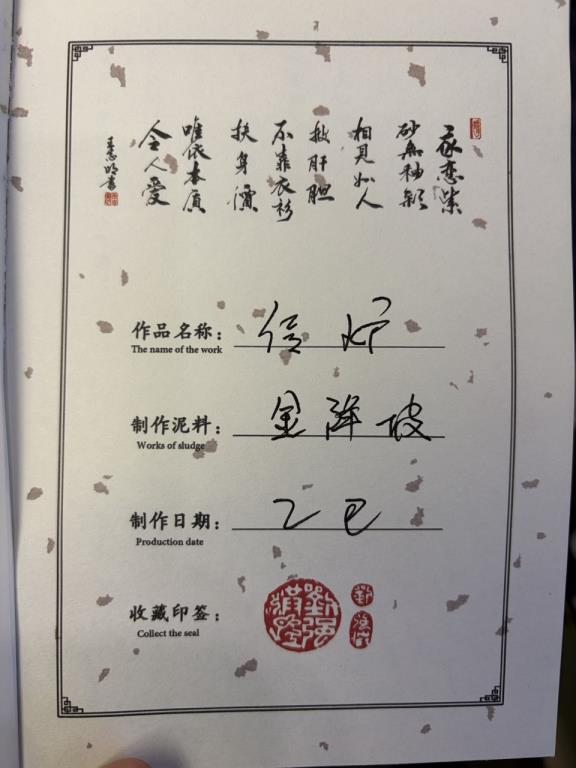 我恋紫
砂無
相見如人
披肝胆
不靠衣衫
身價
唯依本质
令人爱
作品名称： 炉
The name of the work
制作泥料： 金降坡
Works of sludge
制作日期： 乙巳
Production date
收藏印签：
Collect the seal